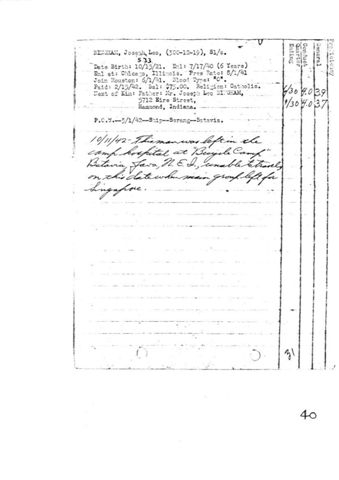 BINGHAM, Joseph, Leo, (300-18-19), S1/c.
533
Date Birth: 10/13/21. Enl: 7/17/40 (6 Years)
Enl at: Chicago, Illinois. Pres Rate: 8/1/41
Join Houston: 6/1/41. Blood Type: "O".
Paid: 2/13/42. Bal: $75.00. Religion: Catholic.
Next of Kin: Father: Mr. Joseph Leo BINGHAM,
5712 Street,
Hammond, Indiana.
P.O.W.--3/1/42--Ship--Serang--Batavia.
10/11/42 - This man was left in the
camp hospital at "Bicycle Camp"
Batavia, Java, N.E.I., unable to travel
on this date when main group left for
Singapore.
Proficiency
General
Conduct
Rating
6/30 4.0 3.9
9/30 4.0 3.7
31
40